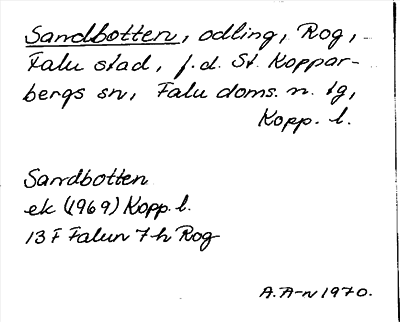 Sandbotten, odling, Rog,
Falu stad, f.d. St. Koppar-
bergs sn, Falu doms. n. tg,
Kopp. l.
Sandbotten
ek (1969) Kopp. l.
13 F Falun 7 h Rog
A. A-n 1970.